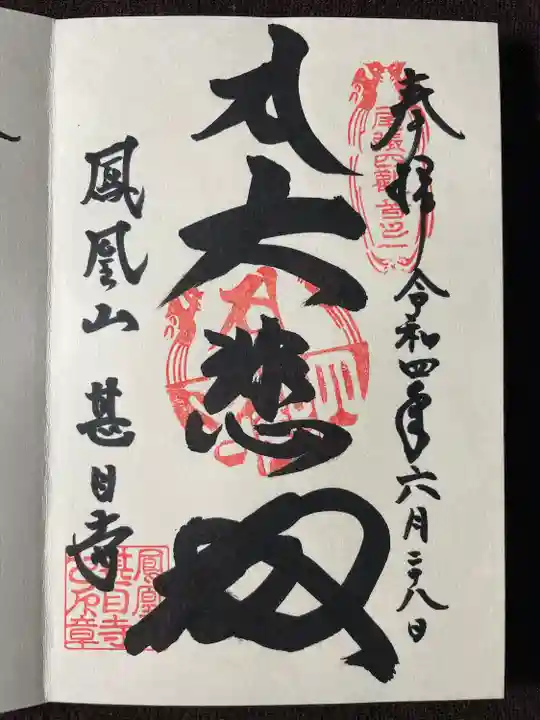 奉拝 令和四年六月二十八日
尾張四観音之一
大悲殿
鳳凰山 甚目寺
鳳凰山
甚目寺
之印章